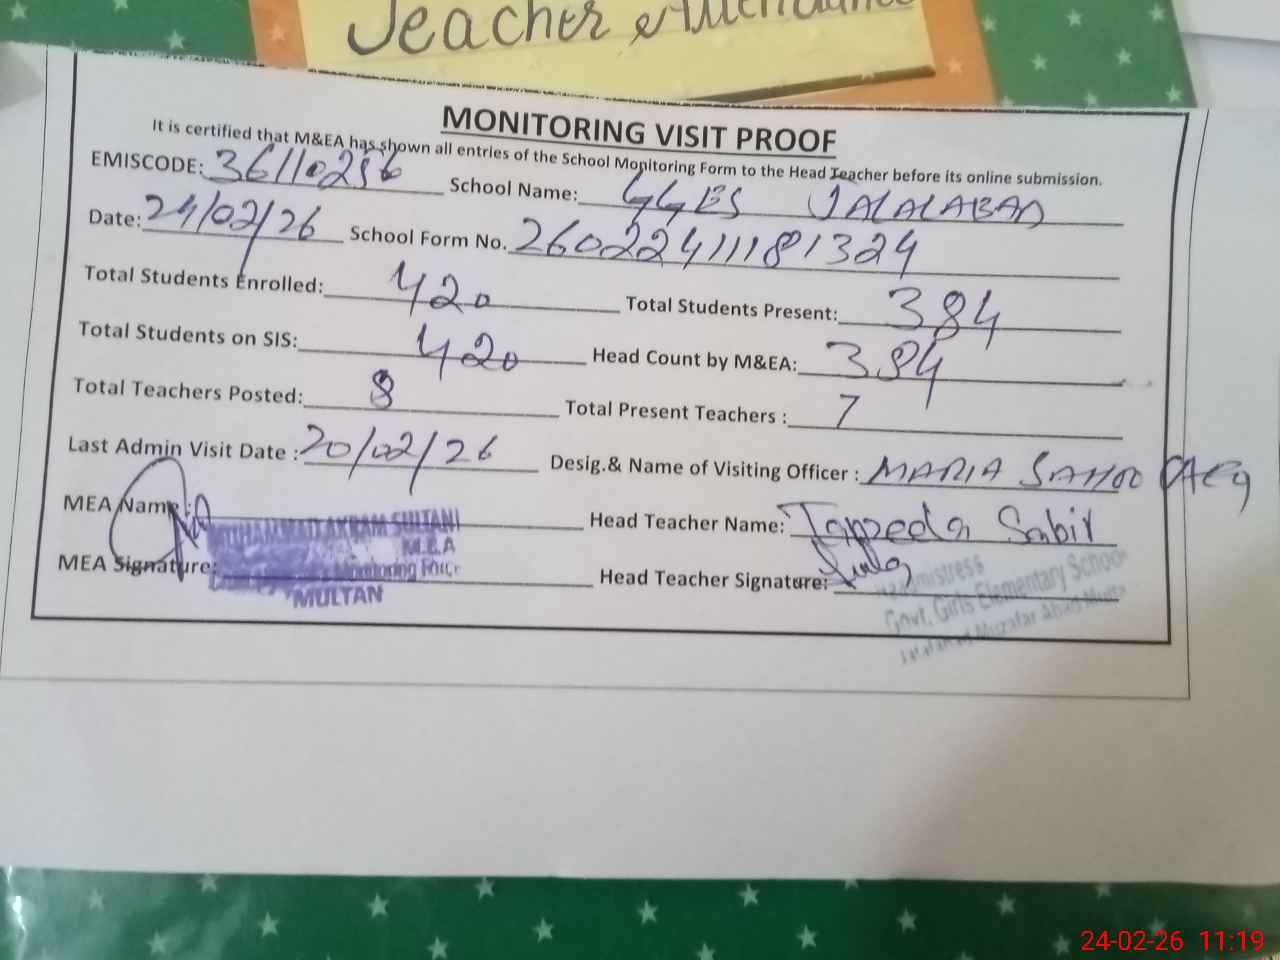 Teacher Attendance
MONITORING VISIT PROOF
It is certified that M&EA has shown all entries of the School Monitoring Form to the Head Teacher before its online submission.
EMISCODE: 36110256 School Name: GGES JALALABAD
Date: 24/02/26 School Form No. 260224111181324
Total Students Enrolled: 420 Total Students Present: 384
Total Students on SIS: 420 Head Count by M&EA: 384
Total Teachers Posted: 8 Total Present Teachers : 7
Last Admin Visit Date : 20/02/26 Desig.& Name of Visiting Officer : MARIA
MEA Name : Head Teacher Name: Sabir
MUHAMMAD AKRAM SULTANI
M.E.A
MEA Signature: Monitoring Force Head Teacher Signature:
MULTAN
Headmistress
Govt. Girls Elementary School
Jalalabad Muzafar Abad
24-02-26 11:19